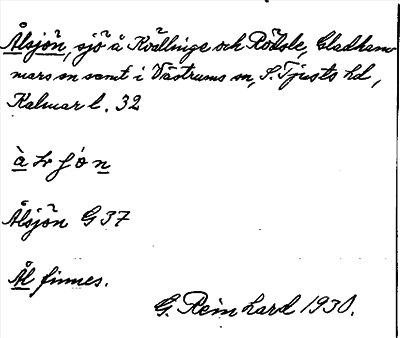 Ålsjön, sjö å Kvällinge och Rödsle, Gladham-
mars sn samt i Västrums sn, S. Tjusts hd,
Kalmar l. 32
Ålsjön G 37
Ål finnes.
G. Reinhard 1930.